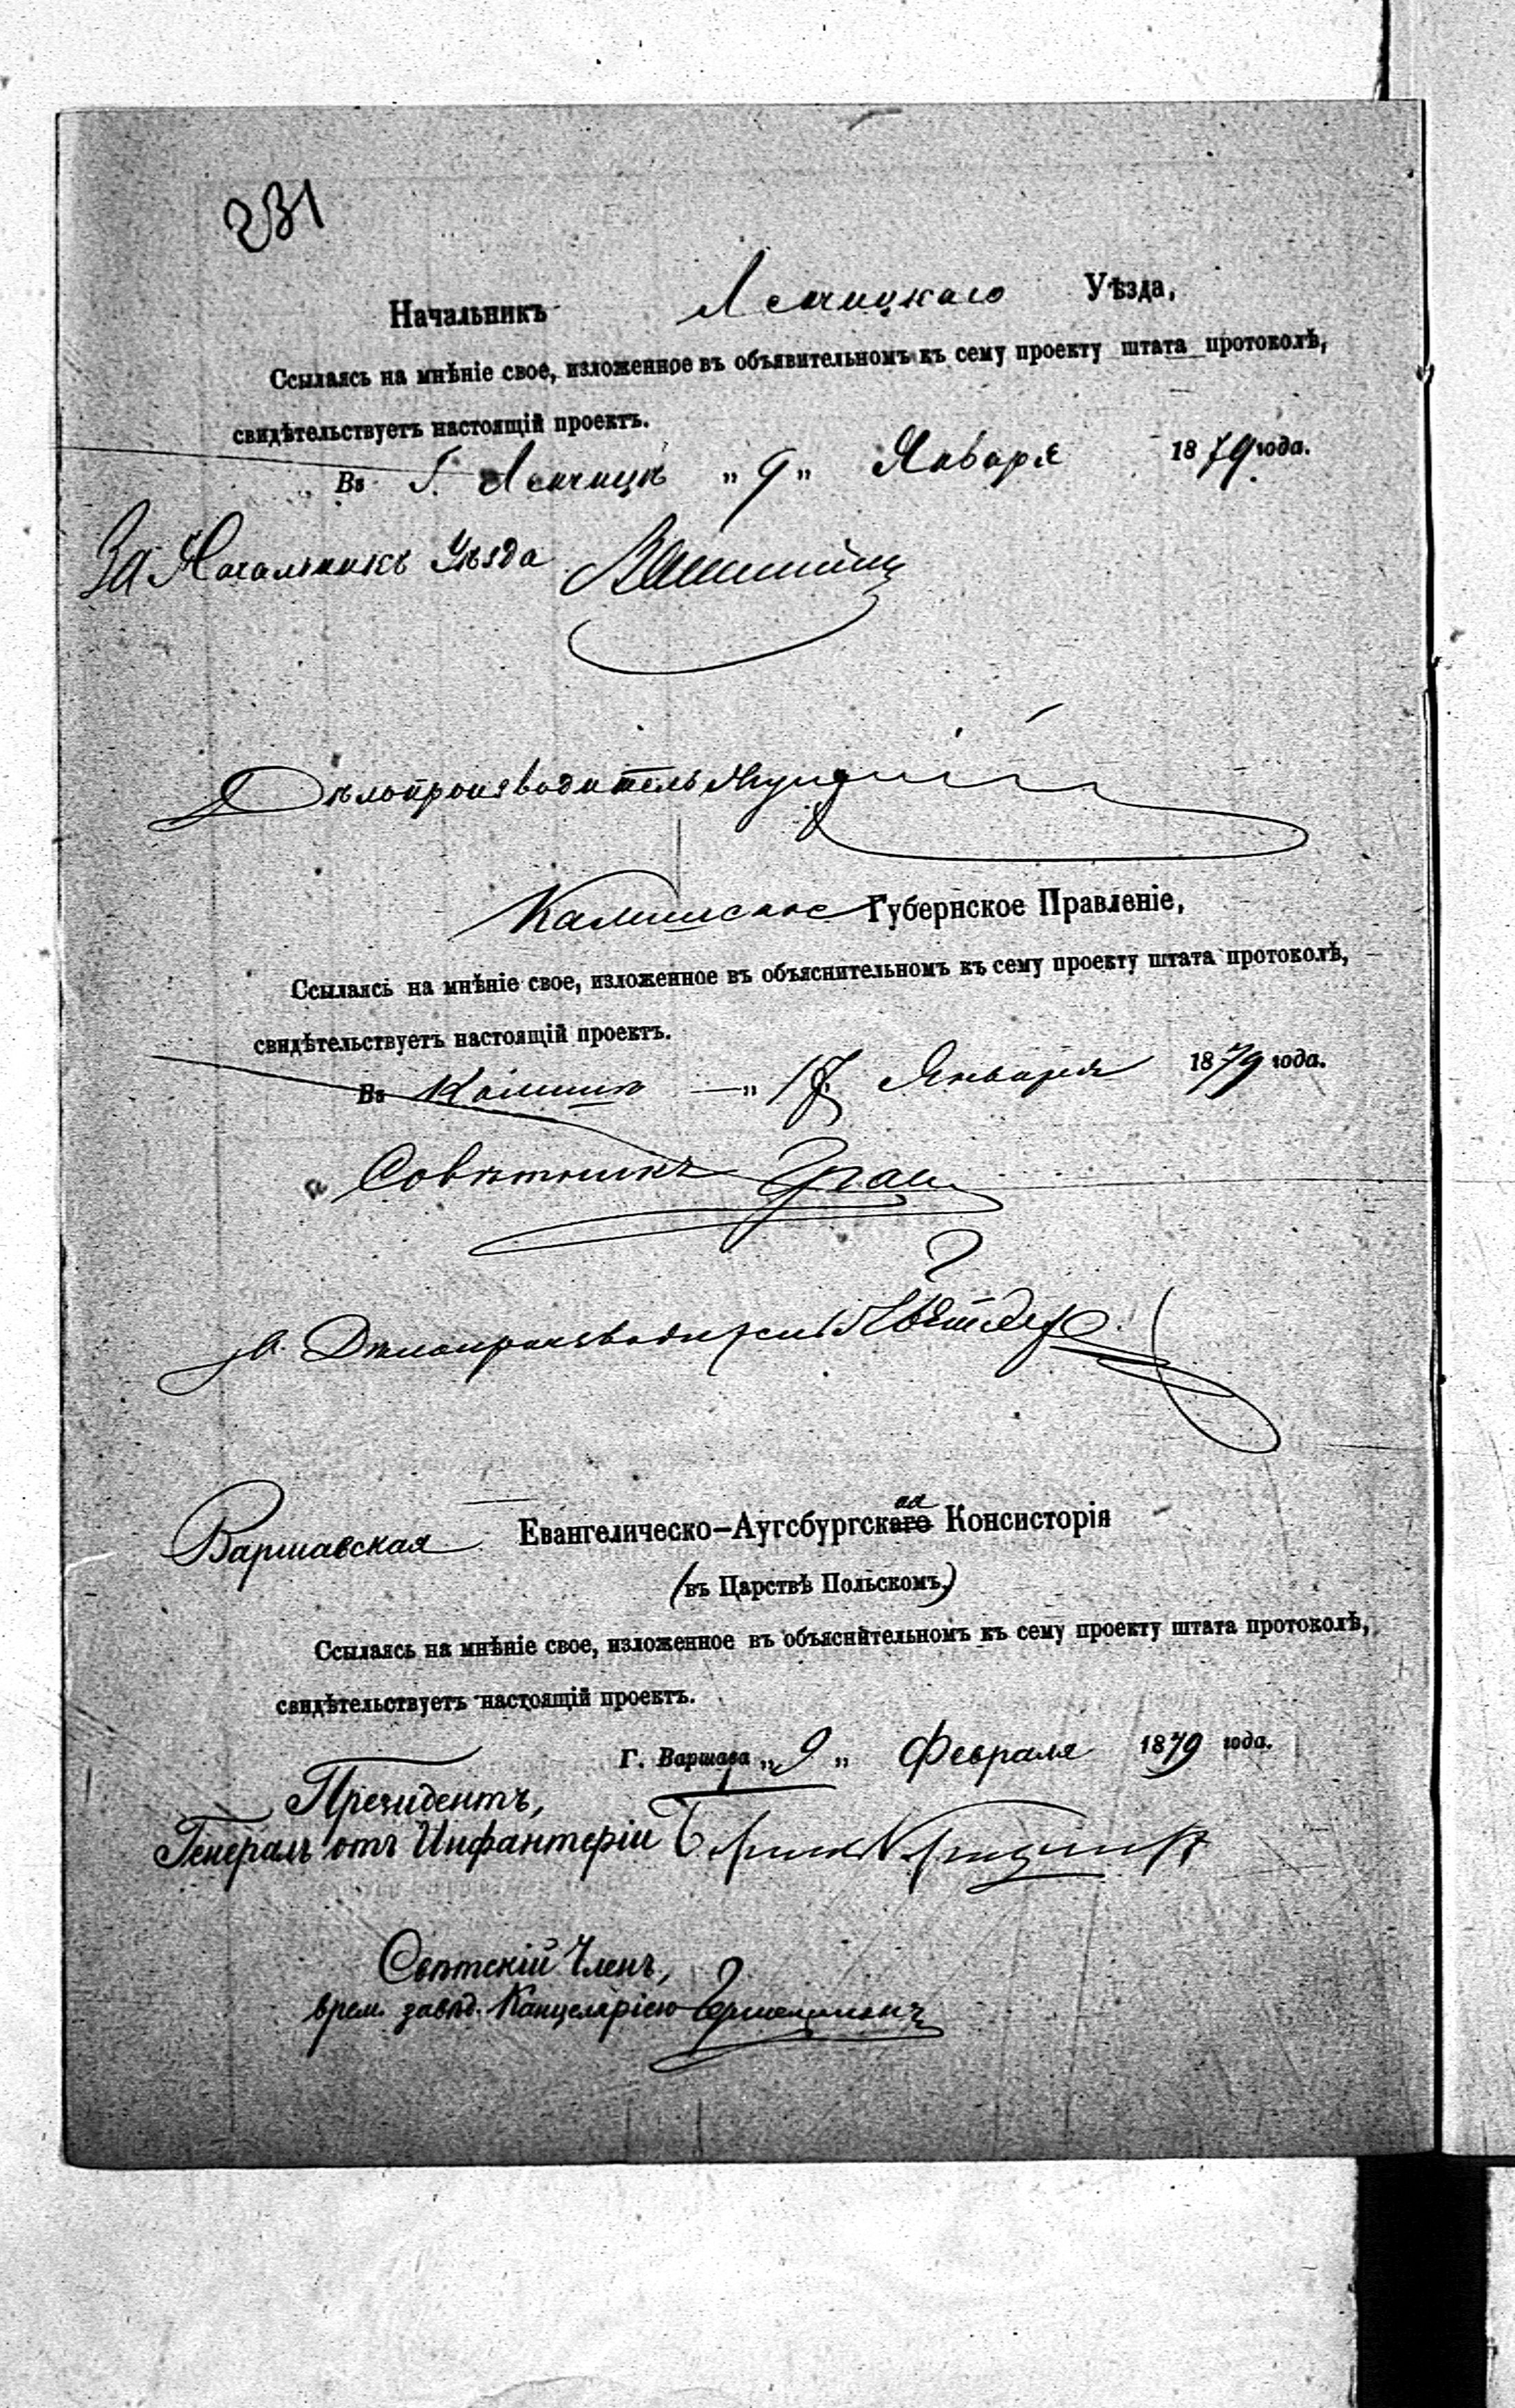 231
Начальникъ Ленчицкаго Уѣзда,
Ссылаясь на мнѣніе свое, изложенное въ объявительномъ къ сему проекту штата протоколѣ,
свидѣтельствуетъ настоящій проектъ.
Въ Г. Ленчицѣ „9„ Января 1879 года.
За Начальникъ Уѣзда
Дѣлопроизводитель
Калишское Губернское Правленіе,
Ссылаясь на мнѣніе свое, изложенное въ объяснительномъ къ сему проекту штата протоколѣ,
свидѣтельствуетъ настоящій проектъ.
Въ Калишѣ „ Января 1879 года.
Совѣтникъ
Дѣлопроизводитель
Варшавская Евангелическо-Аугсбургская Консисторія
(въ Царствѣ Польскомъ,)
Ссылаясь на мнѣніе свое, изложенное въ объяснительномъ къ сему проекту штата протоколѣ,
свидѣтельствуетъ настоящій проектъ.
Г. Варшава „9„ Февраля 1879 года.
Президентъ,
Генералъ отъ Инфантеріи
Свѣтскій Членъ,
врем. завѣд. Канцеляріею